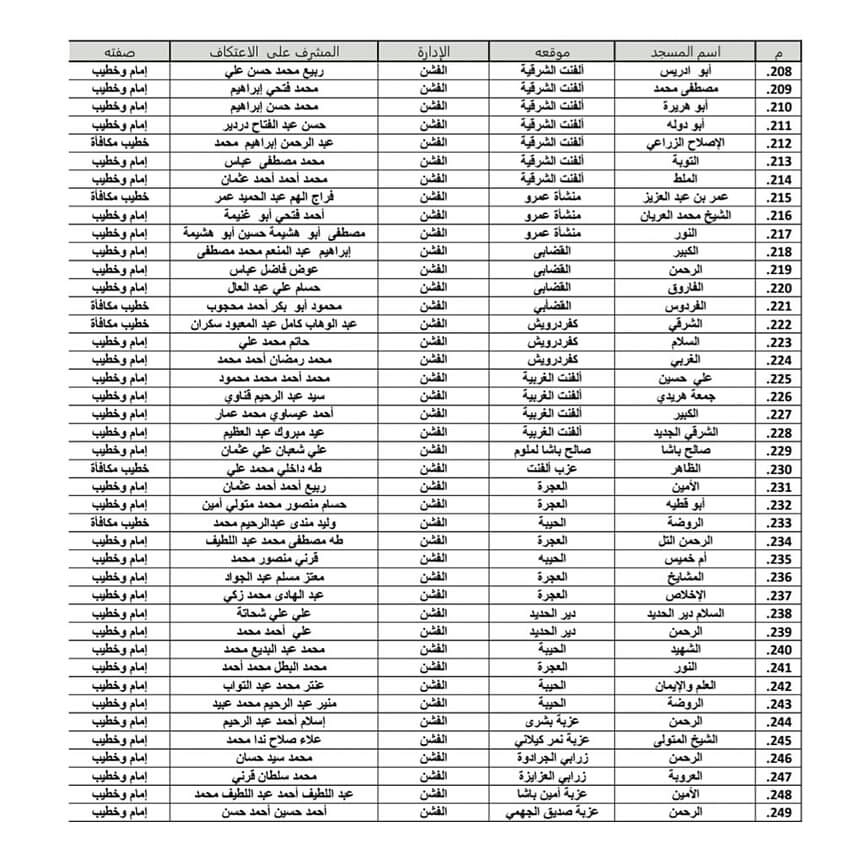 م اسم المسجد موقعه الإدارة المشرف على الاعتكاف صفته
208. أبو ادريس ألفنت الشرقية الفشن ربيع محمد حسن علي إمام وخطيب
209. مصطفى محمد ألفنت الشرقية الفشن محمد فتحي إبراهيم إمام وخطيب
210. أبو هريرة ألفنت الشرقية الفشن محمد حسن إبراهيم إمام وخطيب
211. أبو دوله ألفنت الشرقية الفشن حسن عبد الفتاح دردير إمام وخطيب
212. الإصلاح الزراعي ألفنت الشرقية الفشن عبد الرحمن إبراهيم محمد خطيب مكافأة
213. التوبة ألفنت الشرقية الفشن محمد مصطفى عباس إمام وخطيب
214. الملط ألفنت الشرقية الفشن محمد أحمد أحمد عثمان إمام وخطيب
215. عمر بن عبد العزيز منشأة عمرو الفشن فراج الهم عبد الحميد عمر خطيب مكافأة
216. الشيخ محمد العريان منشأة عمرو الفشن أحمد فتحي أبو غنيمة إمام وخطيب
217. النور منشأة عمرو الفشن مصطفى أبو هشيمة حسين أبو هشيمة إمام وخطيب
218. الكبير القضابى الفشن إبراهيم عبد المنعم محمد مصطفى إمام وخطيب
219. الرحمن القضابى الفشن عوض فاضل عباس إمام وخطيب
220. الفاروق القضابى الفشن حسام علي عبد العال إمام وخطيب
221. الفردوس القضابي الفشن محمود أبو بكر أحمد محجوب خطيب مكافأة
222. الشرقي كفردرويش الفشن عبد الوهاب كامل عبد المعبود سكران خطيب مكافأة
223. السلام كفردرويش الفشن حاتم محمد علي إمام وخطيب
224. الغربي كفردرويش الفشن محمد رمضان أحمد محمد إمام وخطيب
225. علي حسين ألفنت الغربية الفشن محمد أحمد محمد محمود إمام وخطيب
226. جمعة هريدي ألفنت الغربية الفشن سيد عبد الرحيم قناوي إمام وخطيب
227. الكبير ألفنت الغربية الفشن أحمد عيساوي محمد عمار إمام وخطيب
228. الشرقي الجديد ألفنت الغربية الفشن عيد مبروك عبد العظيم إمام وخطيب
229. صالح باشا صالح باشا لملوم الفشن علي شعبان علي عثمان إمام وخطيب
230. الظاهر عزب ألفنت الفشن طه داخلي محمد علي خطيب مكافأة
231. الأمين العجرة الفشن ربيع أحمد أحمد عثمان إمام وخطيب
232. أبو قطيه العجرة الفشن حسام منصور محمد متولي أمين إمام وخطيب
233. الروضة الحيبة الفشن وليد مندى عبدالرحيم محمد خطيب مكافأة
234. الرحمن التل العجرة الفشن طه مصطفى محمد عبد اللطيف إمام وخطيب
235. أم خميس الحيبه الفشن قرني منصور محمد إمام وخطيب
236. المشايخ العجرة الفشن معتز مسلم عبد الجواد إمام وخطيب
237. الإخلاص العجرة الفشن عبد الهادى محمد زكي إمام وخطيب
238. السلام دير الحديد دير الحديد الفشن علي علي شحاتة إمام وخطيب
239. الرحمن دير الحديد الفشن علي أحمد محمد إمام وخطيب
240. الشهيد الحيبة الفشن محمد عبد البديع محمد إمام وخطيب
241. النور العجرة الفشن محمد البطل محمد أحمد إمام وخطيب
242. العلم والإيمان الحيبة الفشن عنتر محمد عبد التواب إمام وخطيب
243. الروضة الحيبة الفشن منير عبد الرحيم محمد عبيد إمام وخطيب
244. الرحمن عزبة بشرى الفشن إسلام أحمد عبد الرحيم إمام وخطيب
245. الشيخ المتولى عزبة نمر كيلاني الفشن علاء صلاح ندا محمد إمام وخطيب
246. الرحمن زرابي الجرادوة الفشن محمد سيد حسان إمام وخطيب
247. العروبة زرابي العزايزة الفشن محمد سلطان قرني إمام وخطيب
248. الأمين عزبة أمين باشا الفشن عبد اللطيف أحمد عبد اللطيف محمد إمام وخطيب
249. الرحمن عزبة صديق الجهمي الفشن أحمد حسين أحمد حسن إمام وخطيب